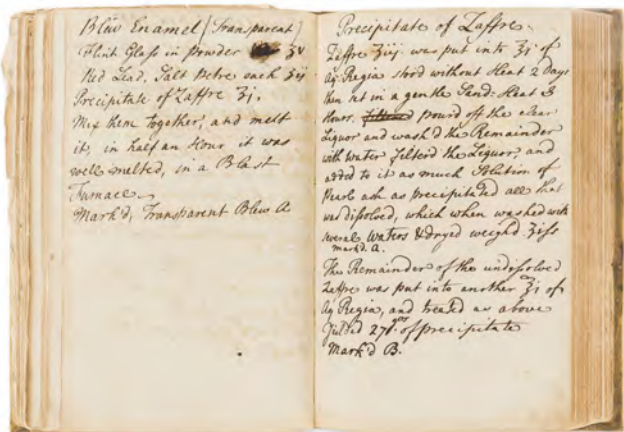 Blew Enamel (Transparent)
Flint Glass in Powder ʒv
Red Lead, Salt Petre each ʒij
Precipitate of Zaffre ʒj.
Mix them together, and melt
it, in half an Hour it was
well melted, in a Blast
Furnace.
Mark'd, Transparent Blew A
Precipitate of Zaffre.
Zaffre ʒiij. was put into ʒj of
Aq Regia stood without Heat 2 Days
then set in a gentle Sand-Heat 3
Hours. pourd off the clear
Liquor and wash'd the Remainder
with Water filterd the Liquor, and
added to it as much Solution of
Pearl ash as precipitated all that
was dissolved, which when washed with
several Waters & dryed weighd ʒiss
mark'd A.
The Remainder of the undissolved
Zaffre was put into another ʒj of
Aq Regia, and treated as above
Yielded 27 grs of precipitate
Mark'd B.